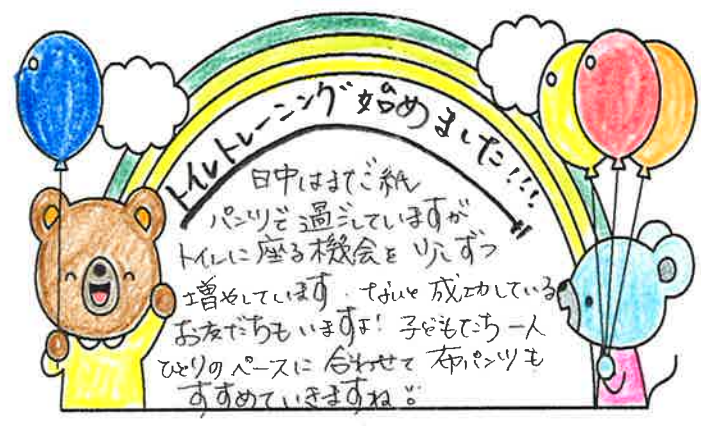 トイレトレーニング始めました!!!
日中はまだ紙
パンツで過ごしていますが
トイレに座る機会を少しずつ
増やしています。なんと成功している
お友だちもいますよ! 子どもたち一人
ひとりのペースに合わせて布パンツも
すすめていきますね